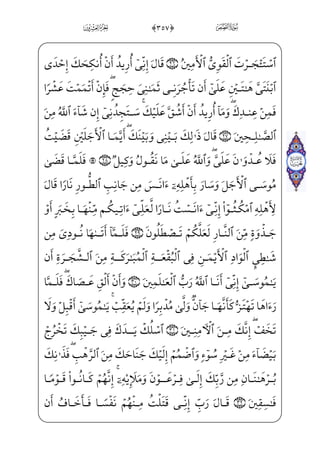 الجزء العشرون ﴿٣٥٧﴾ سورة القصص
ٱسْتَـْٔجَرْتَ ٱلْقَوِىُّ ٱلْأَمِينُ ۝ قَالَ إِنِّىٓ أُرِيدُ أَنْ أُنكِحَكَ إِحْدَى
ٱبْنَتَىَّ هَـٰتَيْنِ عَلَىٰٓ أَن تَأْجُرَنِى ثَمَـٰنِىَ حِجَجٍ ۖ فَإِنْ أَتْمَمْتَ عَشْرًا
فَمِنْ عِندِكَ ۖ وَمَآ أُرِيدُ أَنْ أَشُقَّ عَلَيْكَ ۚ سَتَجِدُنِىٓ إِن شَآءَ ٱللَّهُ مِنَ
ٱلصَّـٰلِحِينَ ۝ قَالَ ذَٰلِكَ بَيْنِى وَبَيْنَكَ ۖ أَيَّمَا ٱلْأَجَلَيْنِ قَضَيْتُ
فَلَا عُدْوَٰنَ عَلَىَّ ۖ وَٱللَّهُ عَلَىٰ مَا نَقُولُ وَكِيلٌ ۝ ۞ فَلَمَّا قَضَىٰ
مُوسَى ٱلْأَجَلَ وَسَارَ بِأَهْلِهِۦٓ ءَانَسَ مِن جَانِبِ ٱلطُّورِ نَارًا قَالَ
لِأَهْلِهِ ٱمْكُثُوٓا۟ إِنِّىٓ ءَانَسْتُ نَارًا لَّعَلِّىٓ ءَاتِيكُم مِّنْهَا بِخَبَرٍ أَوْ
جَذْوَةٍ مِّنَ ٱلنَّارِ لَعَلَّكُمْ تَصْطَلُونَ ۝ فَلَمَّآ أَتَىٰهَا نُودِىَ مِن
شَـٰطِئِ ٱلْوَادِ ٱلْأَيْمَنِ فِى ٱلْبُقْعَةِ ٱلْمُبَـٰرَكَةِ مِنَ ٱلشَّجَرَةِ أَن
يَـٰمُوسَىٰٓ إِنِّىٓ أَنَا ٱللَّهُ رَبُّ ٱلْعَـٰلَمِينَ ۝ وَأَنْ أَلْقِ عَصَاكَ ۖ فَلَمَّا
رَءَاهَا تَهْتَزُّ كَأَنَّهَا جَآنٌّ وَلَّىٰ مُدْبِرًا وَلَمْ يُعَقِّبْ ۚ يَـٰمُوسَىٰٓ أَقْبِلْ وَلَا
تَخَفْ ۖ إِنَّكَ مِنَ ٱلْـَٔامِنِينَ ۝ ٱسْلُكْ يَدَكَ فِى جَيْبِكَ تَخْرُجْ
بَيْضَآءَ مِنْ غَيْرِ سُوٓءٍ وَٱضْمُمْ إِلَيْكَ جَنَاحَكَ مِنَ ٱلرَّهْبِ ۖ فَذَٰنِكَ
بُرْهَـٰنَانِ مِن رَّبِّكَ إِلَىٰ فِرْعَوْنَ وَمَلَإِي۟هِۦٓ ۚ إِنَّهُمْ كَانُوا۟ قَوْمًا
فَـٰسِقِينَ ۝ قَالَ رَبِّ إِنِّى قَتَلْتُ مِنْهُمْ نَفْسًا فَأَخَافُ أَن